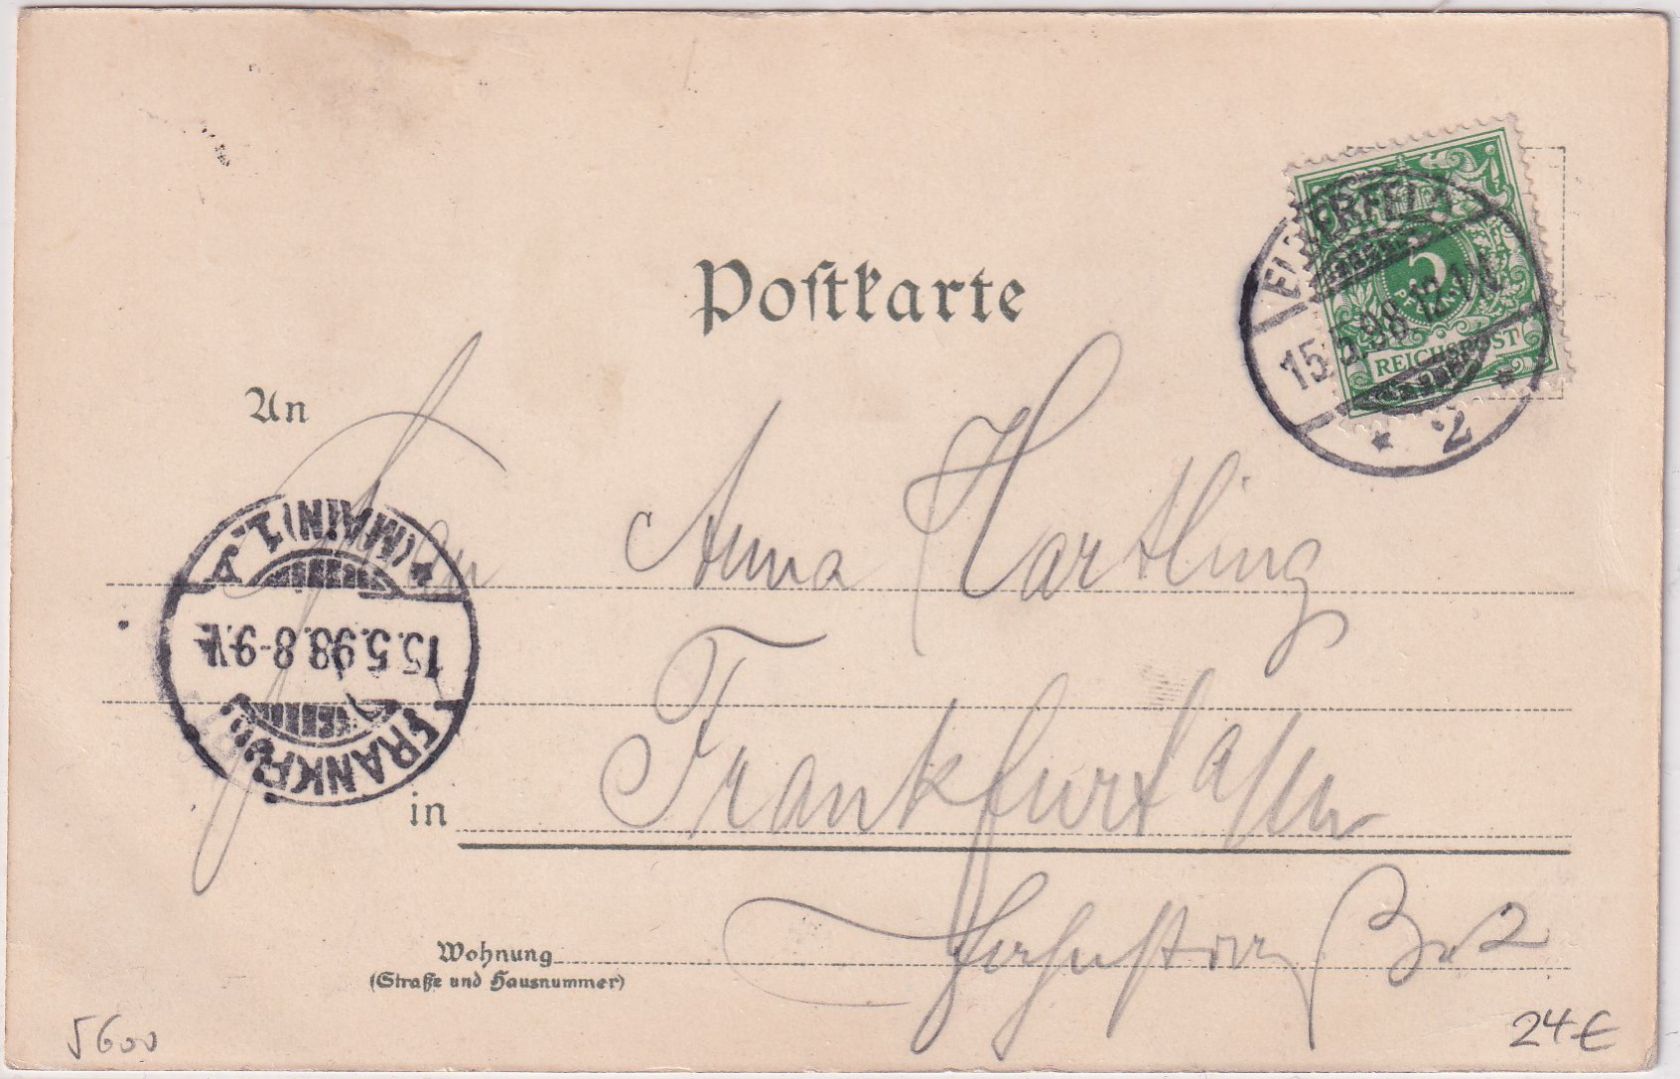 Postkarte
5
PFENNIG
REICHSPOST
ELBERFELD
15.5.98.12-1N.
* 2 *
An
Anna Hartling
FRANKFURT
15.5.98.8-9.V.
*(MAIN)1.
in Frankfurt a/M
Wohnung
(Straße und Hausnummer)
5600
24€